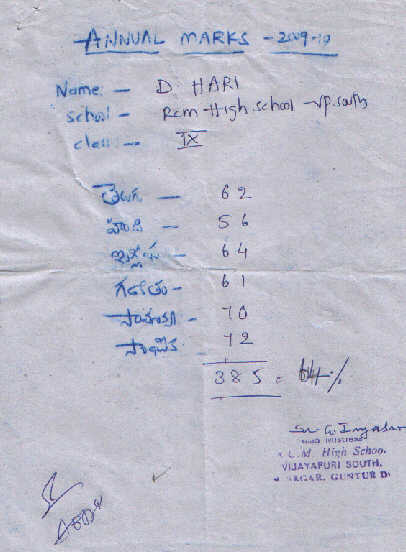 ANNUAL MARKS - 2009-10
Name - D HARI
school - Rcm-High school - V.P. South
class - IX
తెలుగు - 62
హిందీ - 56
ఇంగ్లీషు - 64
గణితం - 61
సామాన్య - 70
సాంఘిక - 72
385 = 64%
HEAD MISTRESS
R.C.M. High School
VIJAYAPURI SOUTH,
N SAGAR, GUNTUR Dt